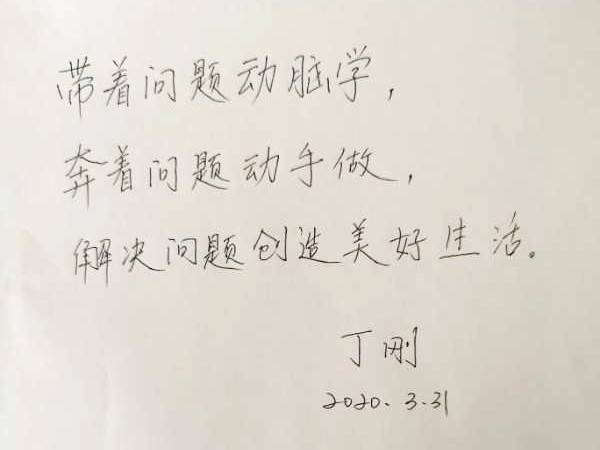 带着问题动脑学，
奔着问题动手做，
解决问题创造美好生活。
丁刚
2020.3.31